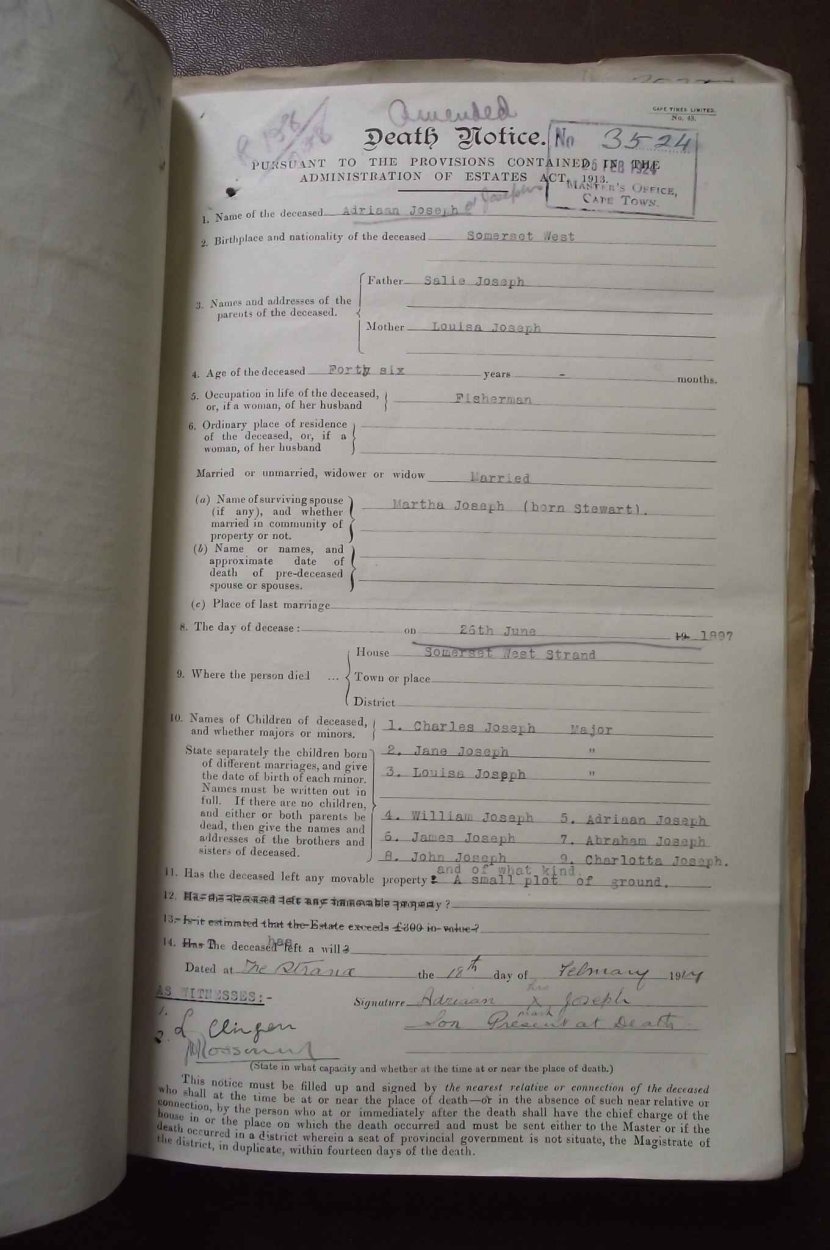 CAPE TIMES LIMITED.
No. 43.
Amended
Death Notice.
No 3524
PURSUANT TO THE PROVISIONS CONTAINED IN THE
ADMINISTRATION OF ESTATES ACT, 1913.
FEB
MASTER'S OFFICE,
CAPE TOWN.
1. Name of the deceased Adriaan Joseph or Josephus
2. Birthplace and nationality of the deceased Somerset West
3. Names and addresses of the parents of the deceased.
Father Salie Joseph
Mother Louisa Joseph
4. Age of the deceased Forty six years - months.
5. Occupation in life of the deceased,
or, if a woman, of her husband
Fisherman
6. Ordinary place of residence
of the deceased, or, if a
woman, of her husband
Married or unmarried, widower or widow Married
(a) Name of surviving spouse
(if any), and whether
married in community of
property or not.
Martha Joseph (born Stewart).
(b) Name or names, and
approximate date of
death of pre-deceased
spouse or spouses.
(c) Place of last marriage
8. The day of decease: on 26th June 19 1897
9. Where the person died ...
House Somerset West Strand
Town or place
District
10. Names of Children of deceased,
and whether majors or minors.
State separately the children born
of different marriages, and give
the date of birth of each minor.
Names must be written out in
full. If there are no children,
and either or both parents be
dead, then give the names and
addresses of the brothers and
sisters of deceased.
1. Charles Joseph Major
2. Jane Joseph "
3. Louisa Joseph "
4. William Joseph 5. Adriaan Joseph
6. James Joseph 7. Abraham Joseph
8. John Joseph 9. Charlotta Joseph.
11. Has the deceased left any movable property and of what kind
? A small plot of ground.
12. Has the deceased left any immovable property?
13. Is it estimated that the Estate exceeds £300 in value?
14. Has The deceased has left a will?
Dated at The Strand the 18th day of February 19
AS WITNESSES:-
Signature Adriaan X Joseph
his
mark
Son Present at Death
1.
2.
(State in what capacity and whether at the time at or near the place of death.)
This notice must be filled up and signed by the nearest relative or connection of the deceased
who shall at the time be at or near the place of death—or in the absence of such near relative or
connection, by the person who at or immediately after the death shall have the chief charge of the
house in or the place on which the death occurred and must be sent either to the Master or if the
death occurred in a district wherein a seat of provincial government is not situate, the Magistrate of
the district, in duplicate, within fourteen days of the death.